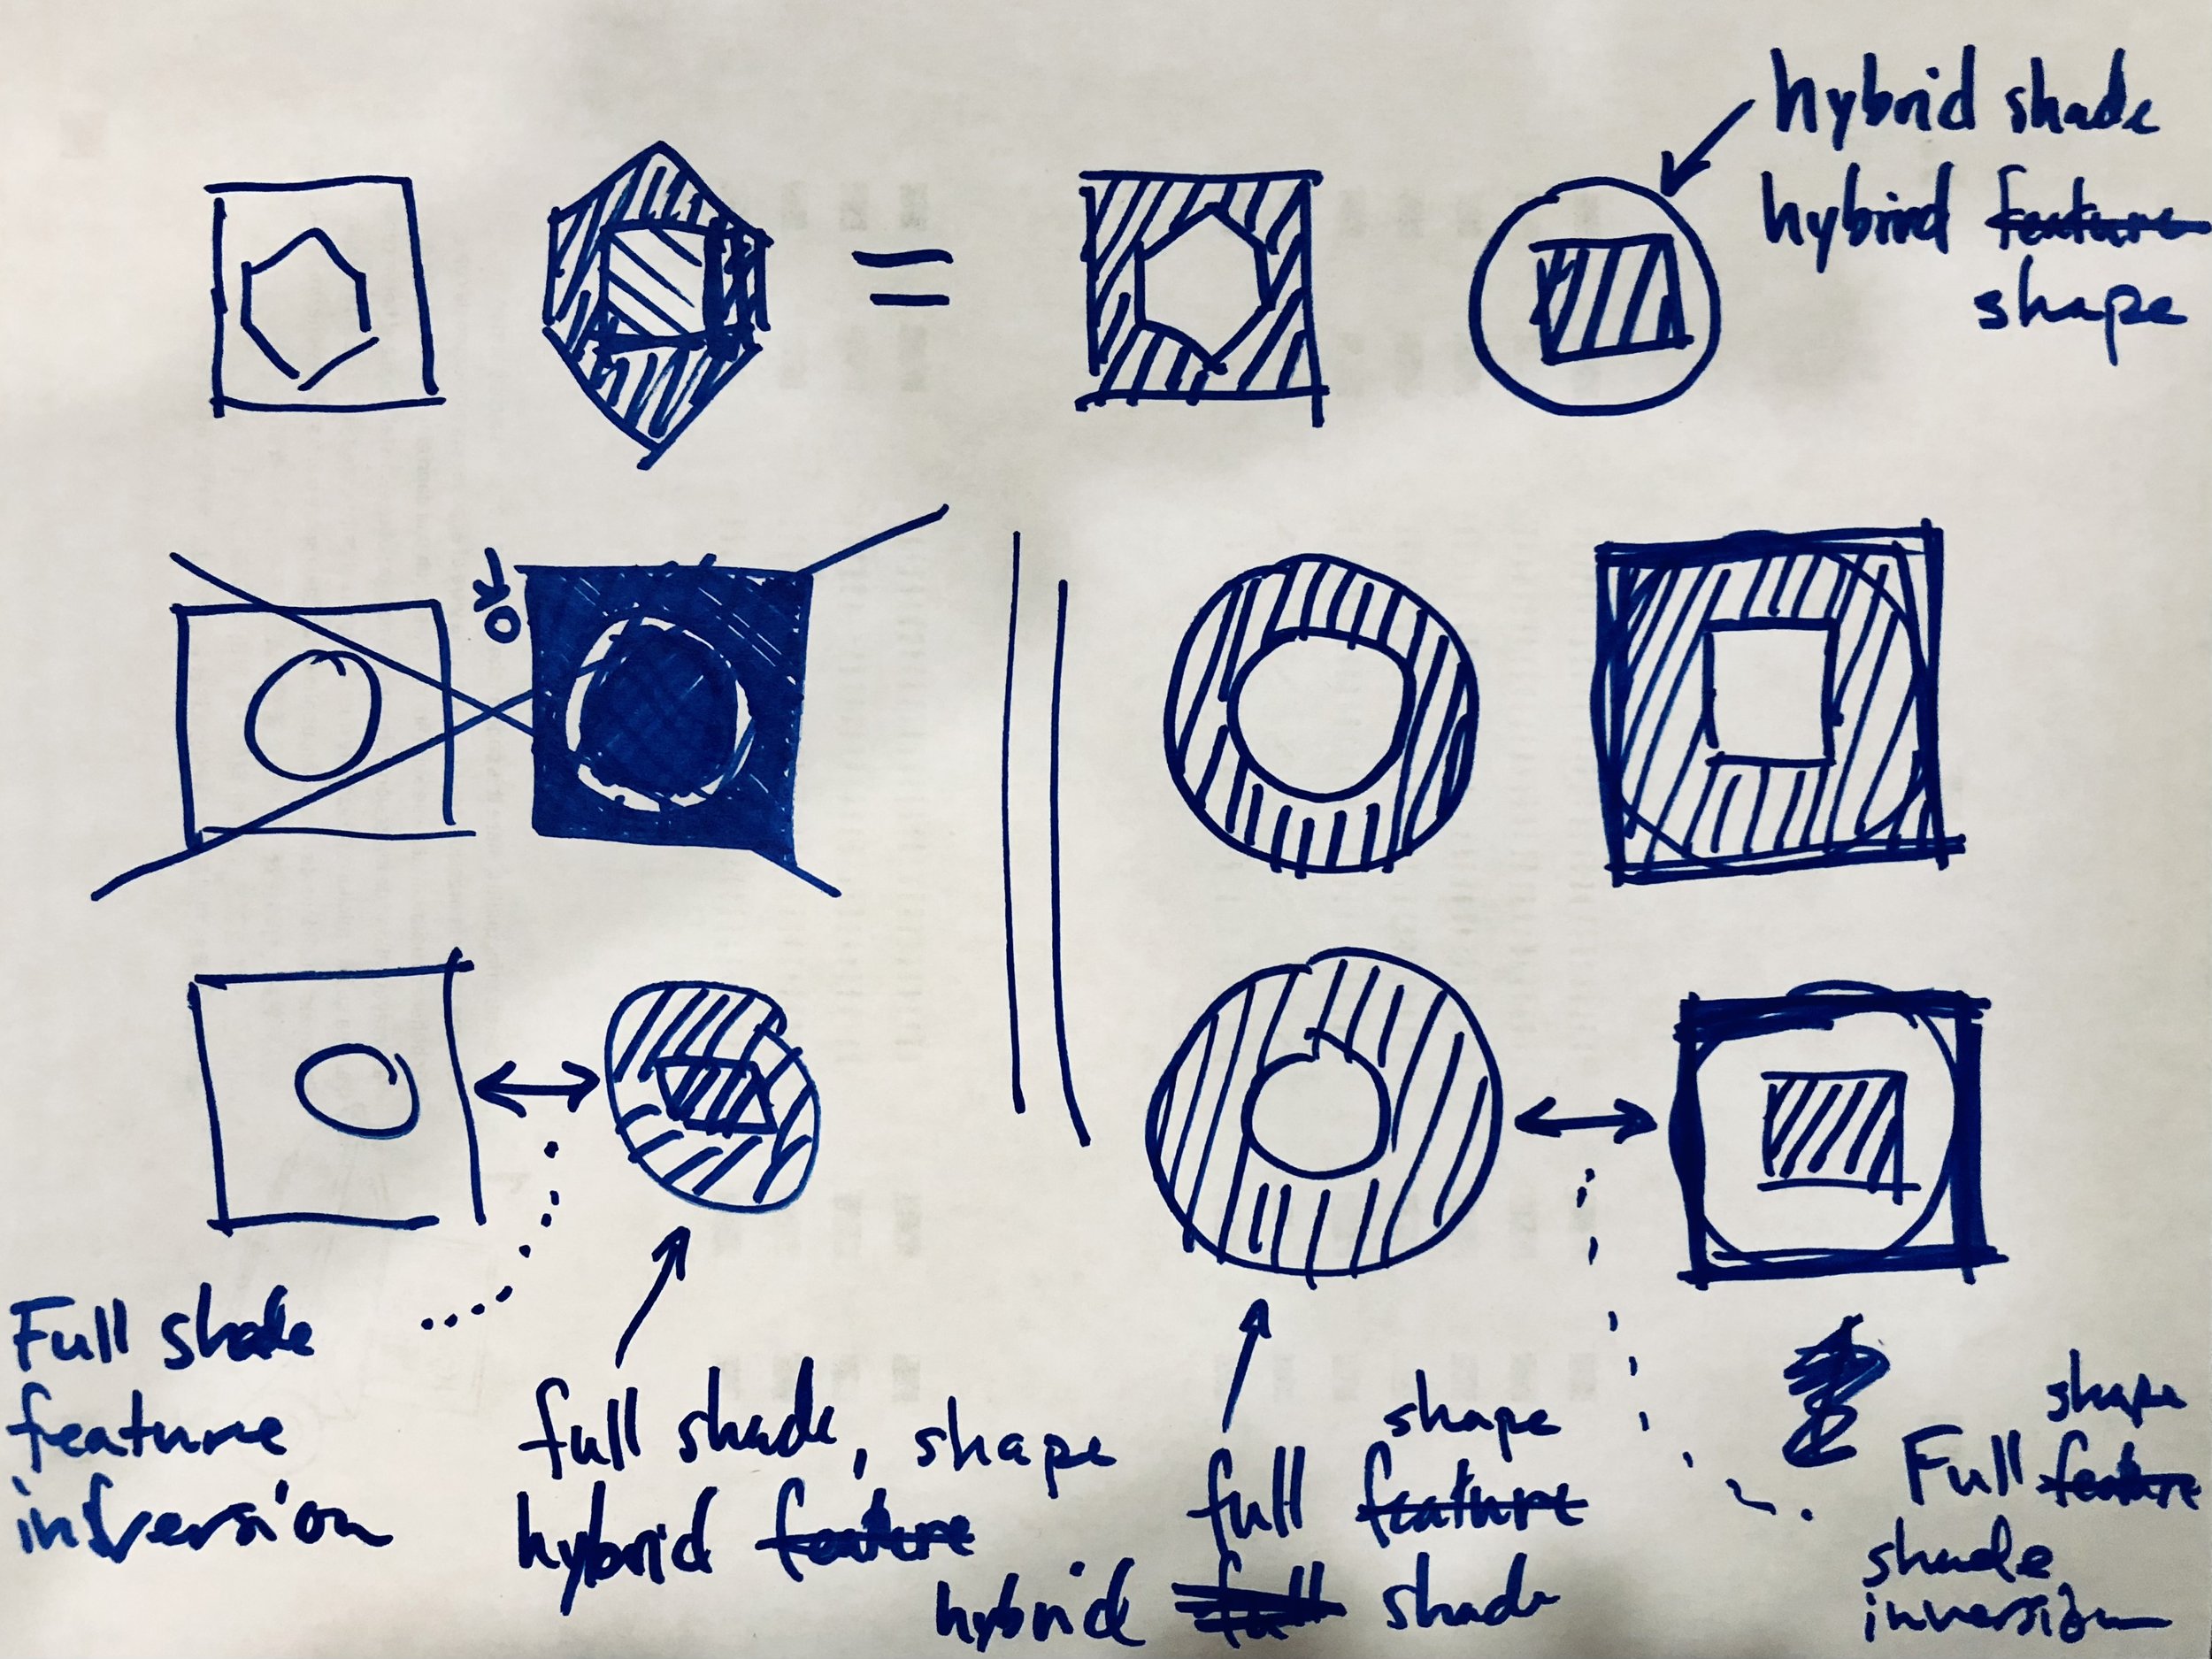 hybrid shade
hybird feature
shape
OK
Full shade
feature
inversion
full shade, shape
hybrid feature
shape
full feature
hybrid full shade
shape
Full feature
shade
inversion